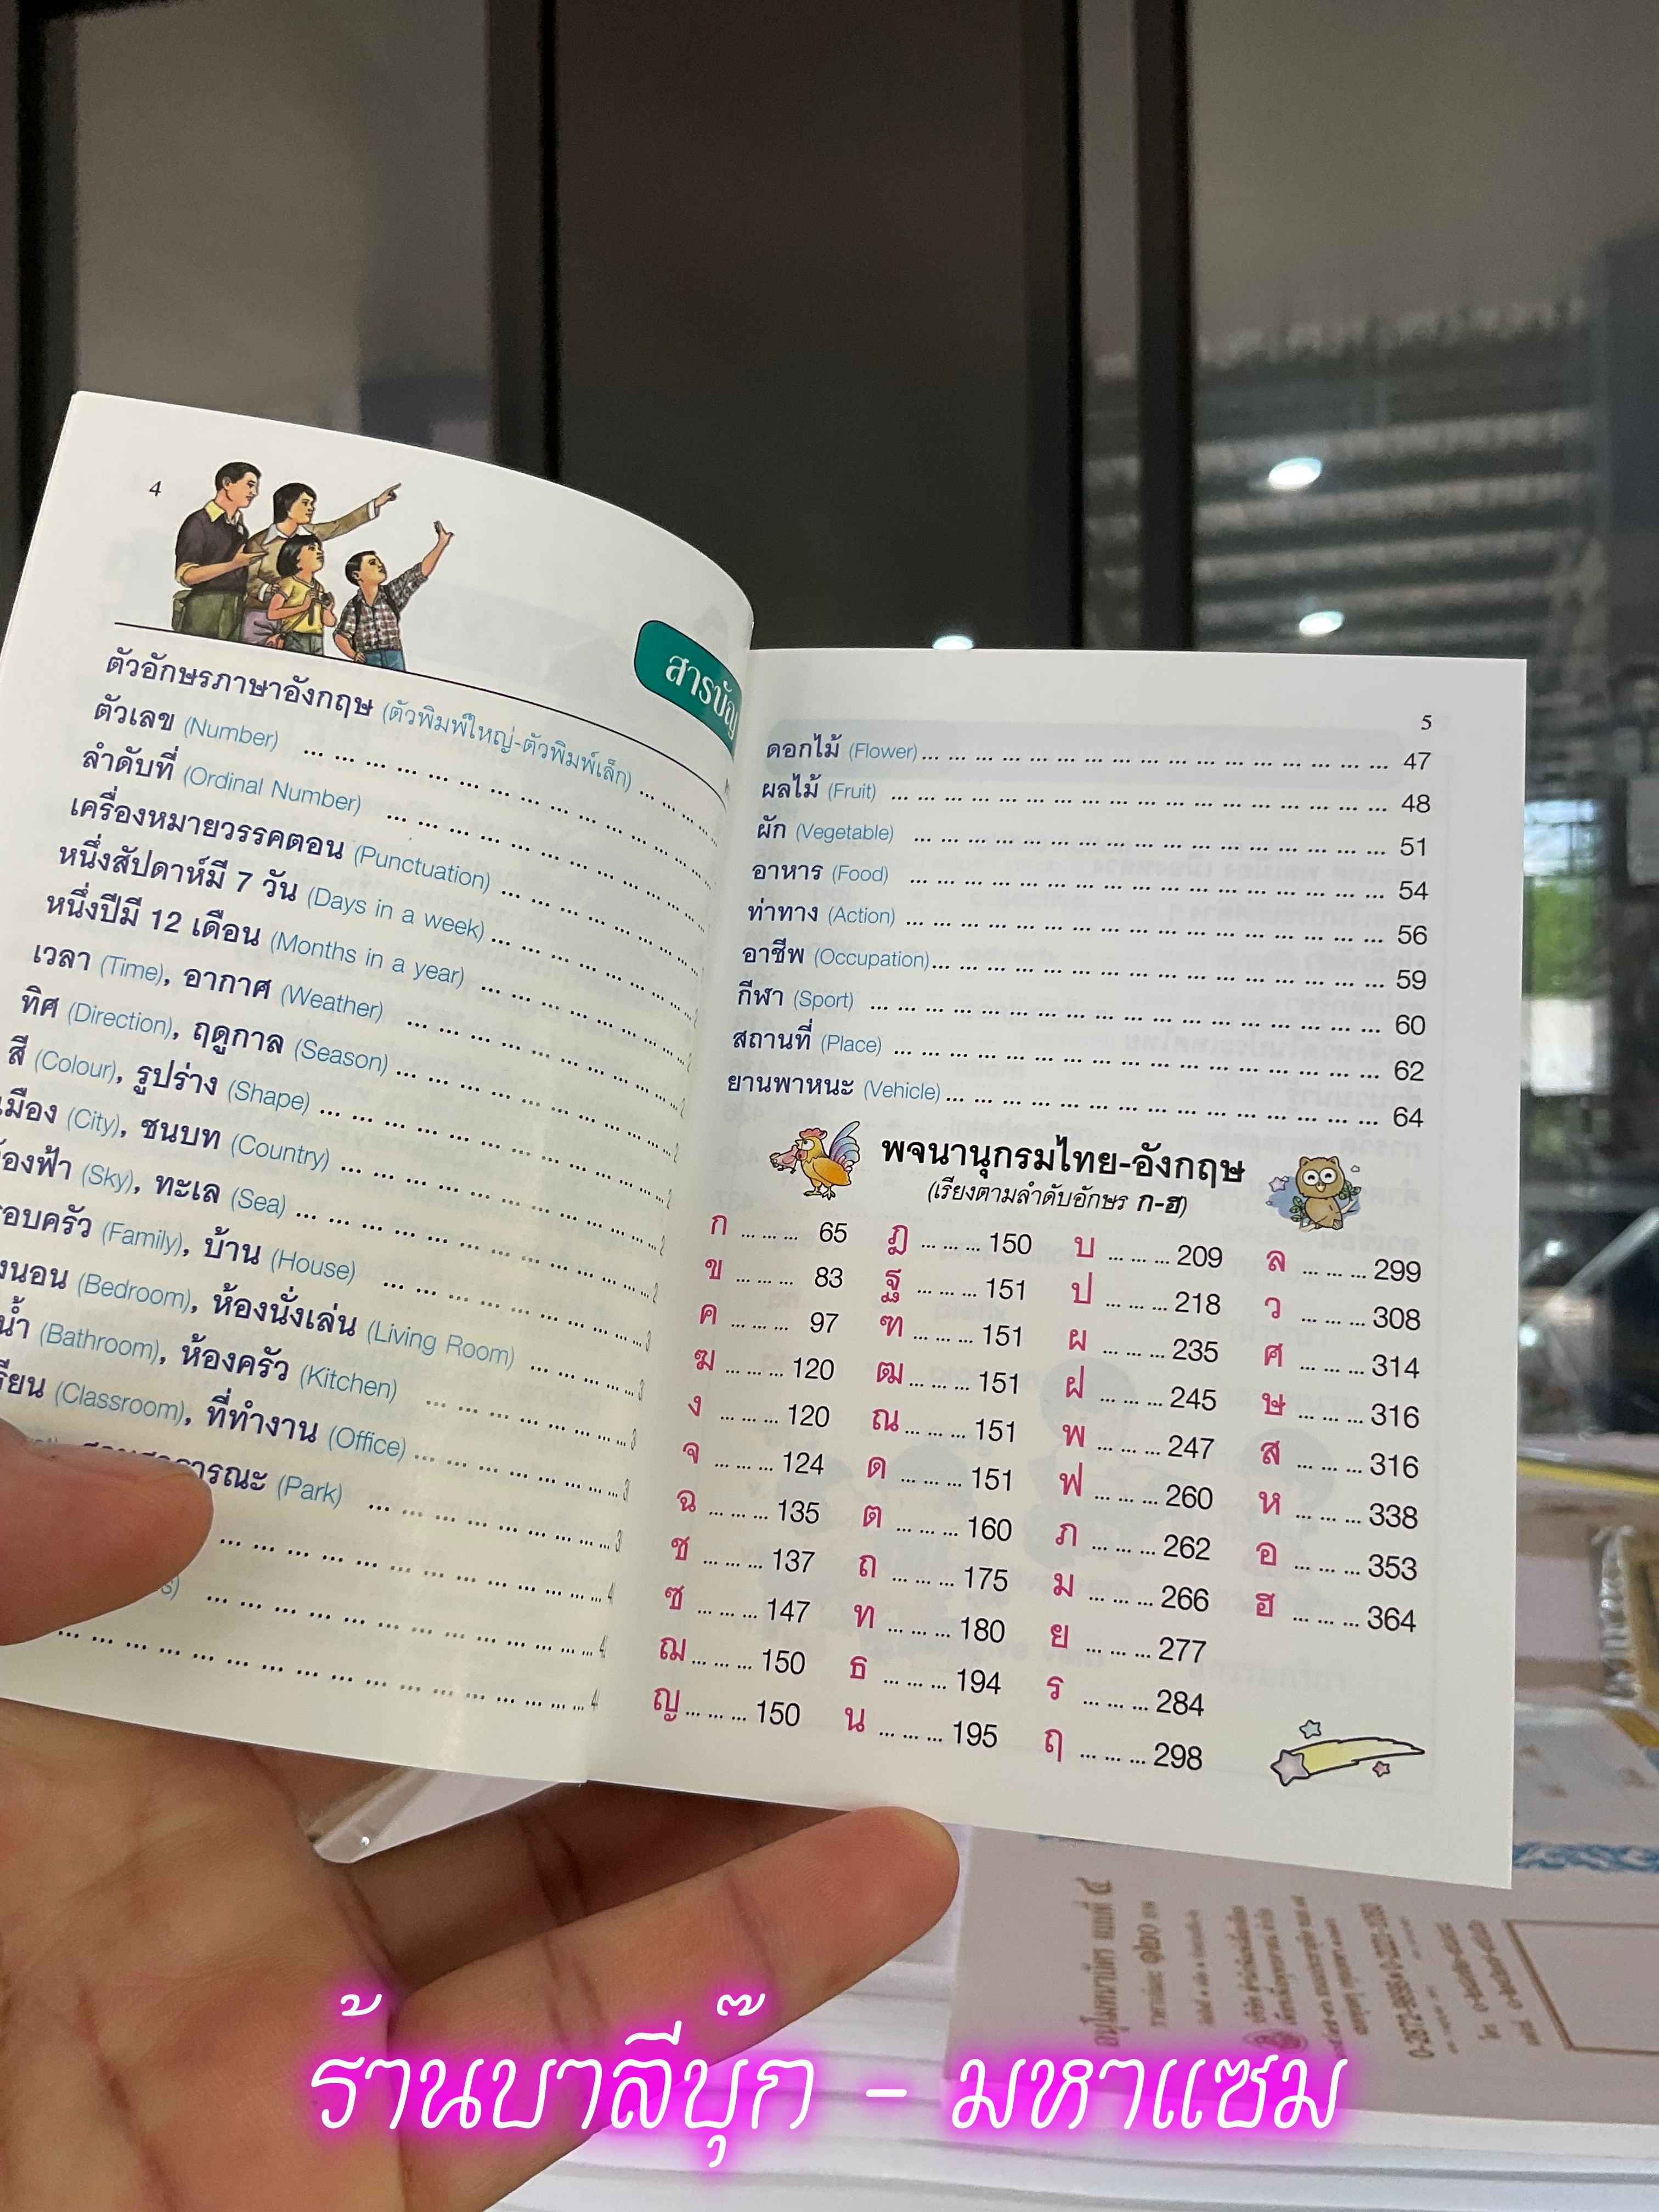 4
สารบัญ
ตัวอักษรภาษาอังกฤษ (ตัวพิมพ์ใหญ่-ตัวพิมพ์เล็ก) ... ... ...
ตัวเลข (Number) ... ... ... ... ... ... ... ... ... ... ... ...
ลำดับที่ (Ordinal Number) ... ... ... ... ... ... ... ... ... ...
เครื่องหมายวรรคตอน (Punctuation) ... ... ... ... ... ... ...
หนึ่งสัปดาห์มี 7 วัน (Days in a week) ... ... ... ... ... ... ...
หนึ่งปีมี 12 เดือน (Months in a year) ... ... ... ... ... ... ...
เวลา (Time), อากาศ (Weather) ... ... ... ... ... ... ... ... ...
ทิศ (Direction), ฤดูกาล (Season) ... ... ... ... ... ... ... ... ...
สี (Colour), รูปร่าง (Shape) ... ... ... ... ... ... ... ... ... ...
เมือง (City), ชนบท (Country) ... ... ... ... ... ... ... ... ... ...
องฟ้า (Sky), ทะเล (Sea) ... ... ... ... ... ... ... ... ... ... ...
อบครัว (Family), บ้าน (House) ... ... ... ... ... ... ... ...
งนอน (Bedroom), ห้องนั่งเล่น (Living Room) ... ... ... ...
น้ำ (Bathroom), ห้องครัว (Kitchen) ... ... ... ... ... ... ...
รียน (Classroom), ที่ทำงาน (Office) ... ... ... ... ... ... ...
(Park) ... ... ... ... ... ... ... ...
5
ดอกไม้ (Flower) ... ... ... ... ... ... ... ... ... ... ... ... 47
ผลไม้ (Fruit) ... ... ... ... ... ... ... ... ... ... ... ... 48
ผัก (Vegetable) ... ... ... ... ... ... ... ... ... ... ... ... 51
อาหาร (Food) ... ... ... ... ... ... ... ... ... ... ... ... 54
ท่าทาง (Action) ... ... ... ... ... ... ... ... ... ... ... ... 56
อาชีพ (Occupation) ... ... ... ... ... ... ... ... ... ... ... 59
กีฬา (Sport) ... ... ... ... ... ... ... ... ... ... ... ... 60
สถานที่ (Place) ... ... ... ... ... ... ... ... ... ... ... ... 62
ยานพาหนะ (Vehicle) ... ... ... ... ... ... ... ... ... ... ... 64
พจนานุกรมไทย-อังกฤษ
(เรียงตามลำดับอักษร ก-ฮ)
ก ... ... ... 65
ข ... ... ... 83
ค ... ... ... 97
ฆ ... ... ... 120
ง ... ... ... 120
จ ... ... ... 124
ฉ ... ... ... 135
ช ... ... ... 137
ซ ... ... ... 147
ฌ ... ... ... 150
ญ ... ... ... 150
ฎ ... ... ... 150
ฐ ... ... ... 151
ฑ ... ... ... 151
ฒ ... ... ... 151
ณ ... ... ... 151
ด ... ... ... 151
ต ... ... ... 160
ถ ... ... ... 175
ท ... ... ... 180
ธ ... ... ... 194
น ... ... ... 195
บ ... ... ... 209
ป ... ... ... 218
ผ ... ... ... 235
ฝ ... ... ... 245
พ ... ... ... 247
ฟ ... ... ... 260
ภ ... ... ... 262
ม ... ... ... 266
ย ... ... ... 277
ร ... ... ... 284
ฤ ... ... ... 298
ล ... ... ... 299
ว ... ... ... 308
ศ ... ... ... 314
ษ ... ... ... 316
ส ... ... ... 316
ห ... ... ... 338
อ ... ... ... 353
ฮ ... ... ... 364
ร้านบาลีบุ๊ก - มหาแซม